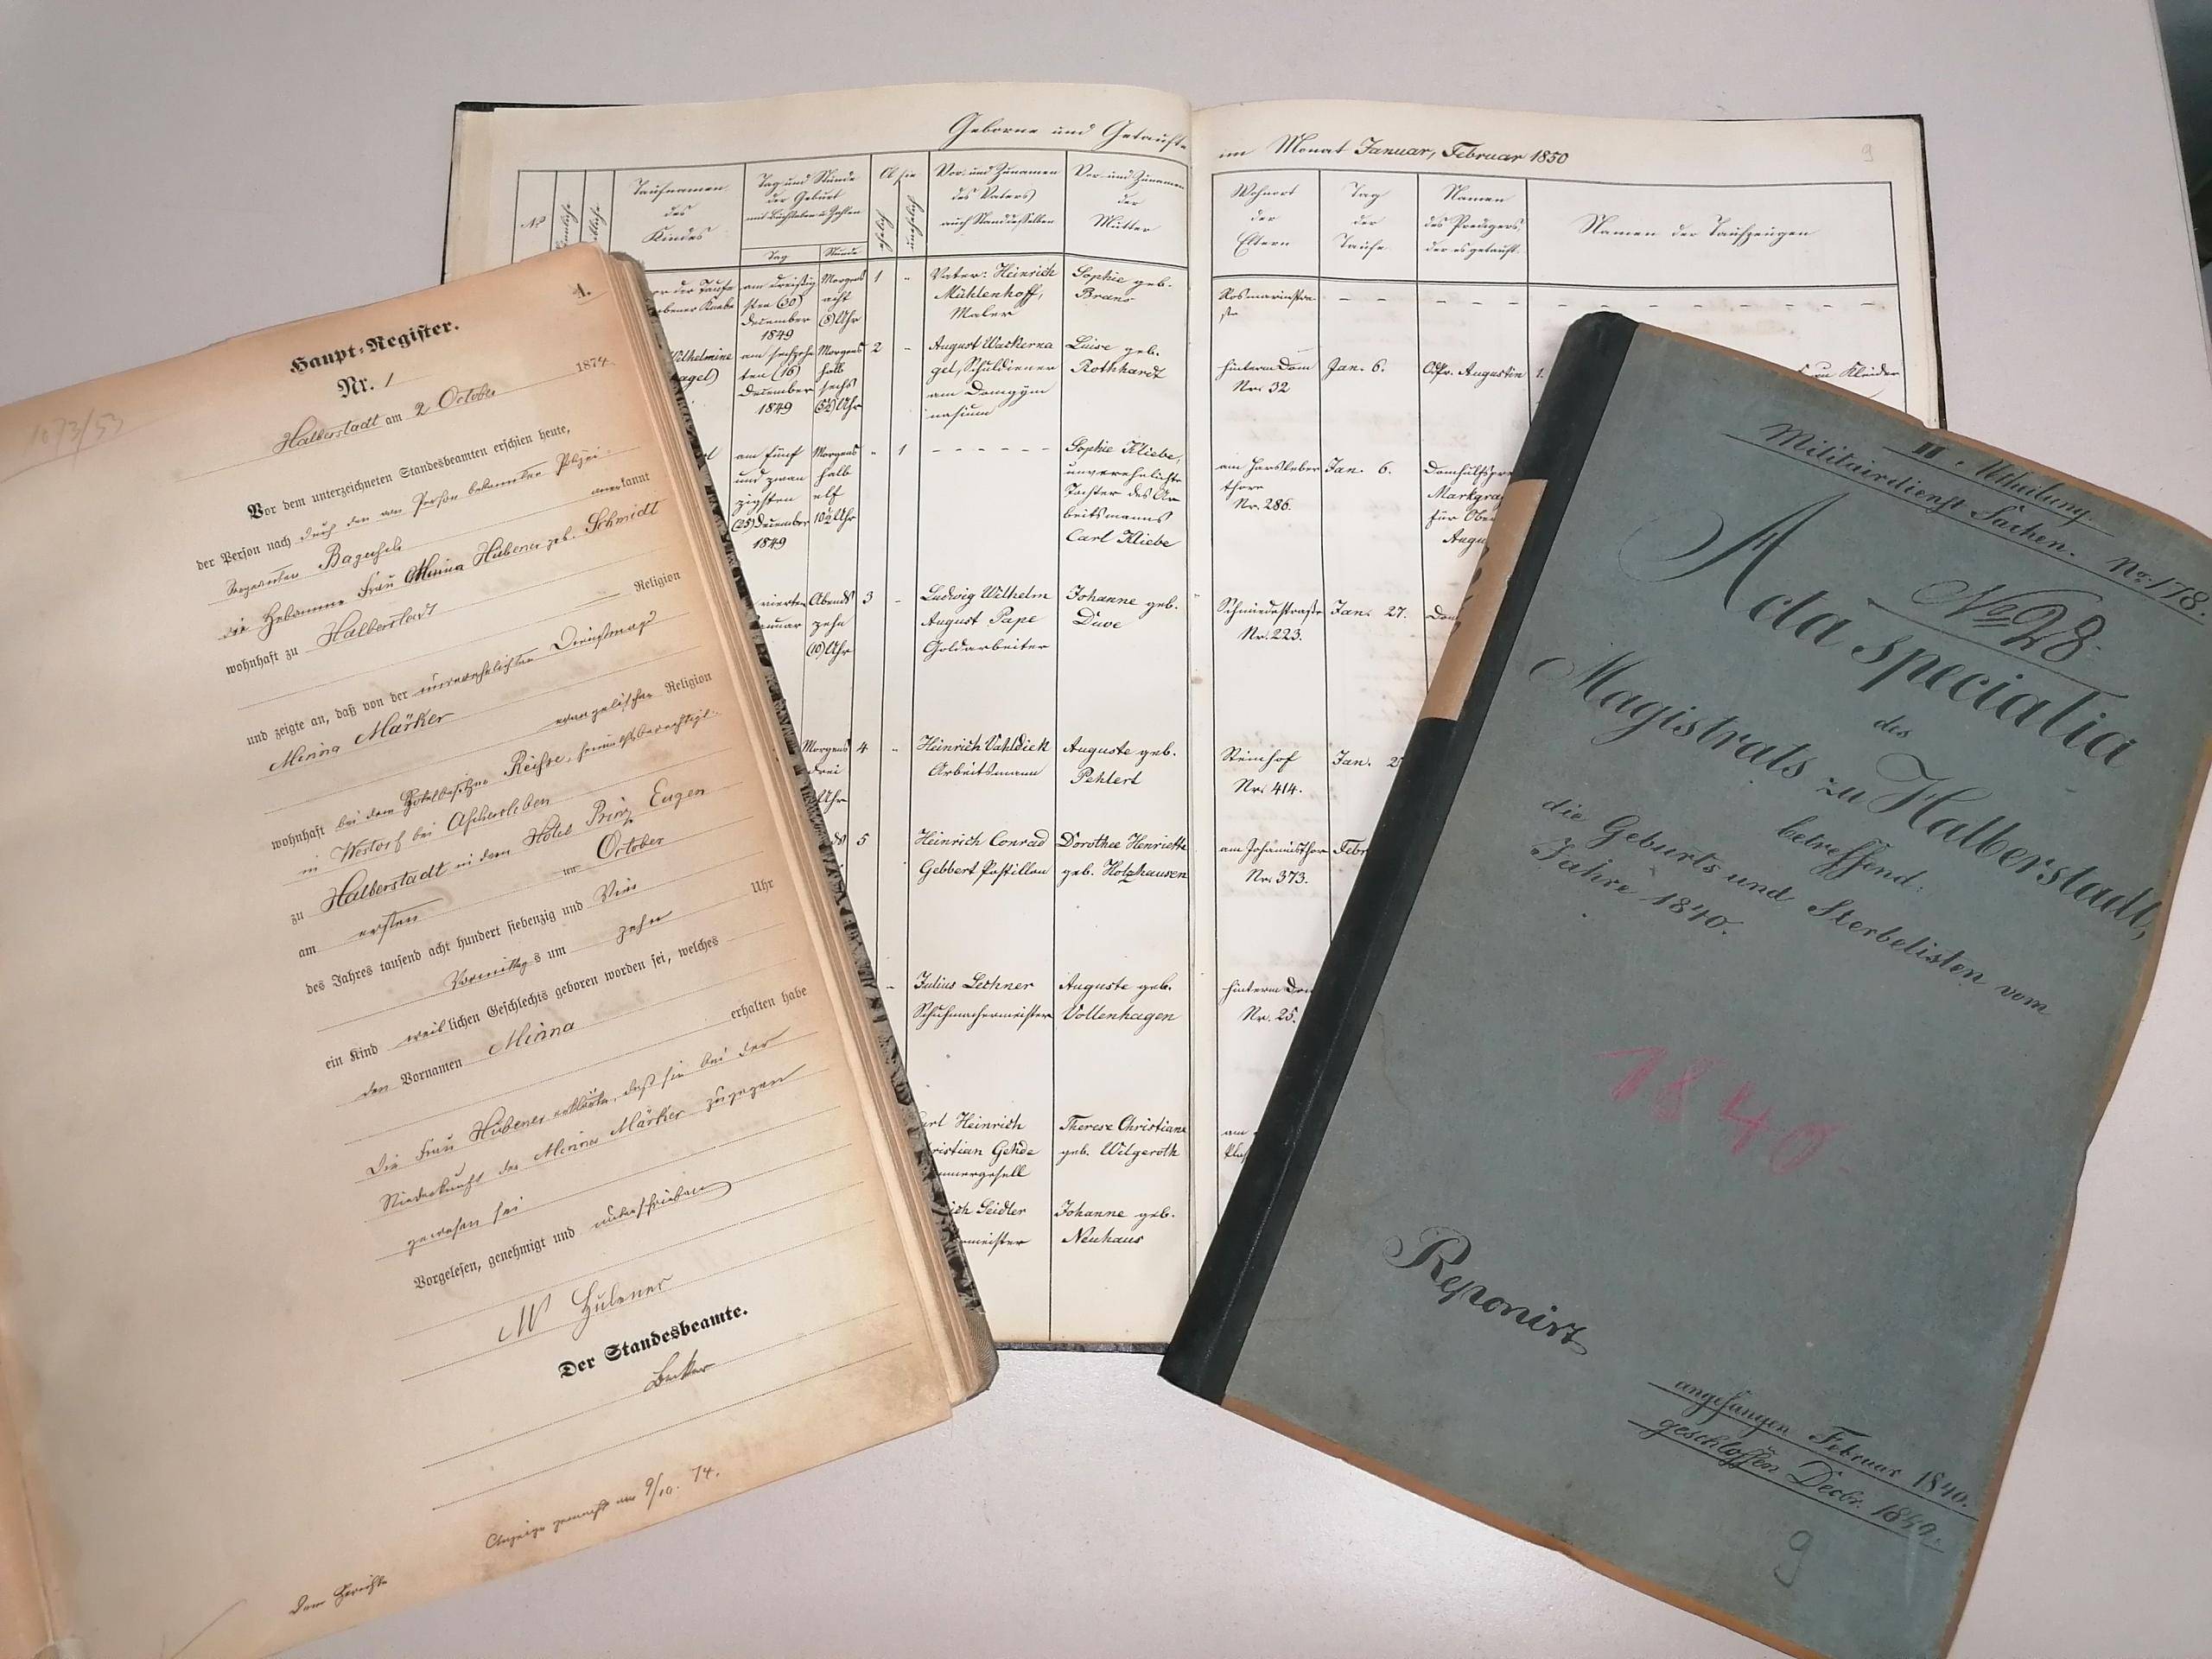 Haupt-Register.
1.
Nr. 1
Halberstadt am 2 October 1874
Vor dem unterzeichneten Standesbeamten erschien heute,
der Person nach durch den von Person bekannten Polizei-
Sergeanten anerkannt
die Hebamme Frau Minna Hübener geb. Schmidt
wohnhaft zu Halberstadt
Religion
und zeigte an, daß von der unverehelichten Dienstmagd
Minna Märker
evangelischer Religion
wohnhaft bei dem Hotelbesitzer Reiße,
in Westorf bei Aschersleben
zu Halberstadt in dem Hotel Prinz Eugen
am ersten ten October
des Jahres tausend acht hundert siebenzig und Vier
Vormittags um zehn Uhr
ein Kind weiblichen Geschlechts geboren worden sei, welches
den Vornamen Minna
erhalten habe
Die Frau Hübener erklärte, daß sie bei der
Niederkunft der Minna Märker zugegen
gewesen sei
Vorgelesen, genehmigt und unterschrieben
M Hübener
Der Standesbeamte.
Becker
Anzeige gemacht am 9/10. 74.
1073/53
Geborne und Getaufte im Monat Januar, Februar 1850
9
No
Taufnamen des Kindes
Tag und Stunde der Geburt mit Buchstaben u Zahlen
Tag
Stunde
Ob sie
ehelich
unehelich
Vor- und Zunamen des Vaters, auch Stand desselben
Vor- und Zunamen der Mutter
Wohnort der Eltern
Tag der Taufe
Namen des Predigers, der es getauft.
Namen der Taufzeugen
vor der Taufe
am dreißigsten (30) December 1849
Morgens acht (8) Uhr
1
Vater: Heinrich Mühlenhoff, Maler
Sophie geb. Brans
Rosmarinstraße
Wilhelmine
am sechzehnten (16) December 1849
Morgens halb sechs (5½) Uhr
2
August Wackernagel, Schuldiener am Domgymnasium
Luise geb. Rothhardt
hinterm Dom Nr. 32
Jan. 6.
Obpr. Augustin
1.
am fünf und zwanzigsten (25) December 1849
Morgens halb elf 10½ Uhr
1
Sophie Kliebe, unverehelichte Tochter des Arbeitsmanns Carl Kliebe
am Harsleberthore Nr. 286.
Jan. 6.
vierten
Abends zehn (10) Uhr
3
Ludwig Wilhelm August Pape Goldarbeiter
Johanne geb. Düve
Schmiedestraße Nr. 223.
Jan. 27.
Morgens drei Uhr
4
Heinrich Vahldiek Arbeitsmann
Auguste geb. Pehlert
Steinhof Nr. 414.
Jan. 2
5
Heinrich Conrad Gebbert Postillon
Dorothee Henriette geb. Holzhausen
am Johannisthor Nr. 373.
Febr
Julius Lechner Schuhmachermeister
Auguste geb. Vollenhagen
hinterm Dom Nr. 25.
Heinrich
Gehde
Therese Christiane geb. Wilgeroth
Seidler
meister
Johanne geb. Neuhaus
II Abtheilung.
Militairdienst Sachen. No. 178.
No 28.
Acta specialia
des
Magistrats zu Halberstadt,
betreffend:
die Geburts und Sterbelisten vom
Jahre 1840.
1840.
Reponirt
angefangen Februar 1840.
geschlossen Decbr. 1840.
9